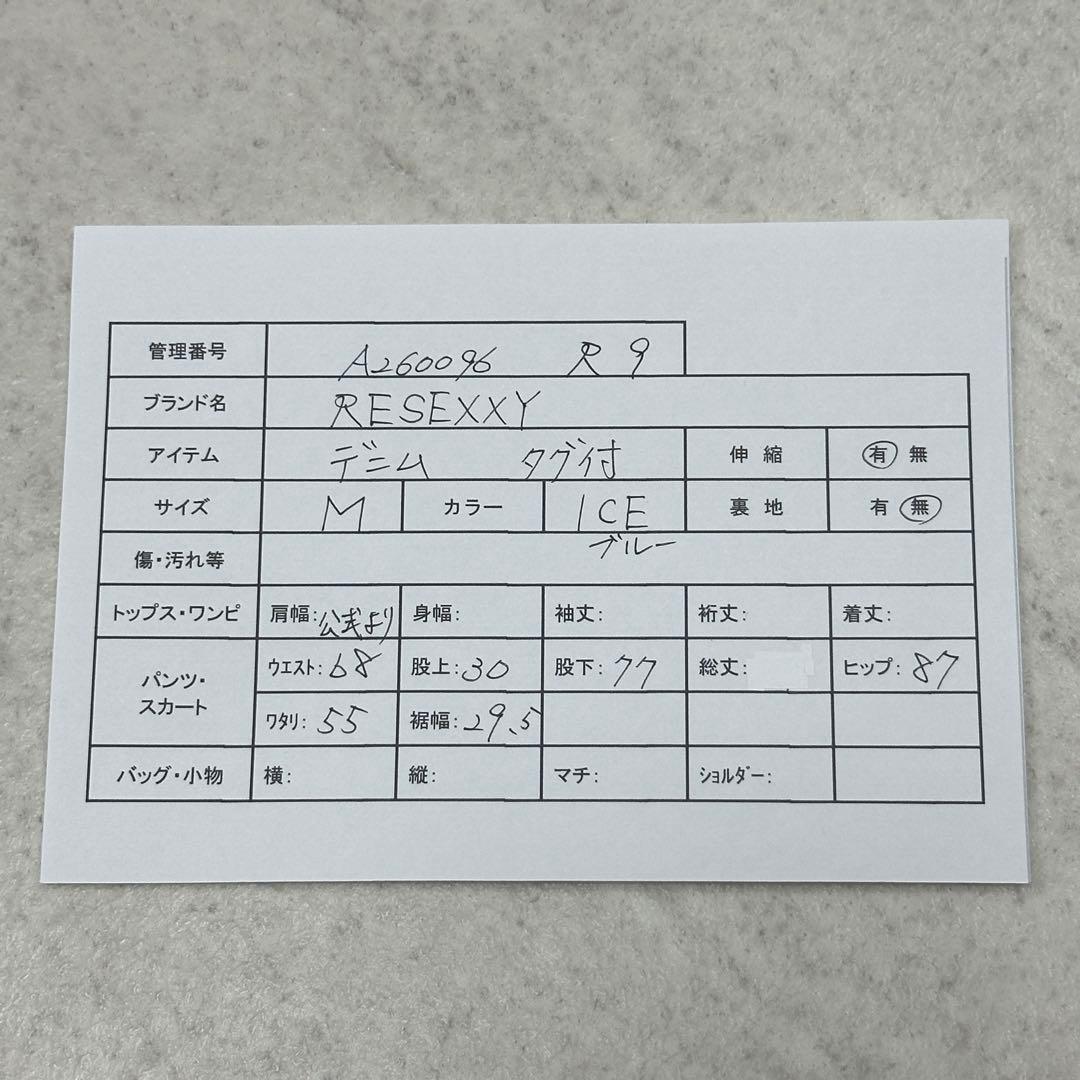 管理番号 A260096 R 9
ブランド名 RESEXXY
アイテム デニム タグ付 伸縮 有 無
サイズ M カラー ICE 裏地 有 無
ブルー
傷・汚れ等
トップス・ワンピ 肩幅: 公式より 身幅: 袖丈: 裄丈: 着丈:
パンツ・スカート ウエスト: 68 股上: 30 股下: 77 総丈: ヒップ: 87
ワタリ: 55 裾幅: 29.5
バッグ・小物 横: 縦: マチ: ショルダー: